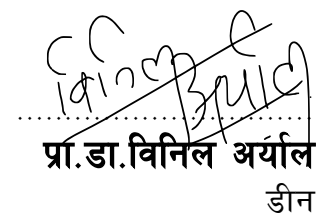 विनिल अर्याल
....................................................
प्रा.डा.विनिल अर्याल
डीन